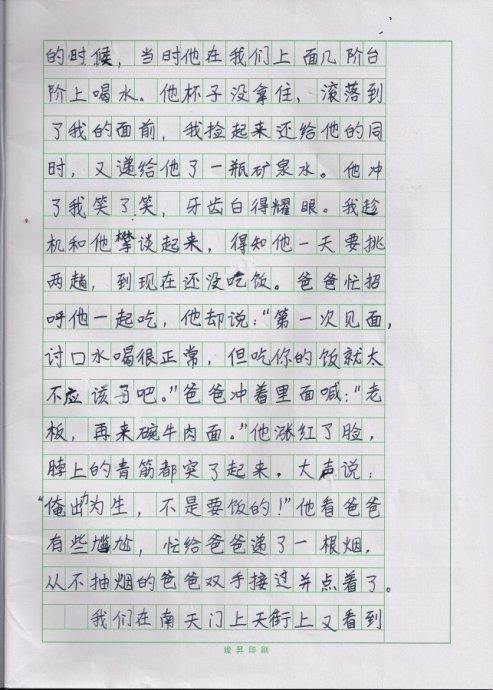 的时候，当时他在我们上面几阶台
阶上喝水。他杯子没拿住，滚落到
了我的面前，我捡起来还给他的同
时，又递给他了一瓶矿泉水。他冲
了我笑了笑，牙齿白得耀眼。我趁
机和他攀谈起来，得知他一天要挑
两趟，到现在还没吃饭。爸爸忙招
呼他一起吃，他却说：“第一次见面，
讨口水喝很正常，但吃你的饭就太
不应该了吧。”爸爸冲着里面喊：“老
板，再来碗牛肉面。”他涨红了脸，
脖上的青筋都突了起来。大声说：
“俺出力为生，不是要饭的！”他看爸爸
有些尴尬，忙给爸爸递了一根烟，
从不抽烟的爸爸双手接过并点着了。
我们在南天门上天街上又看到
竣昇印刷